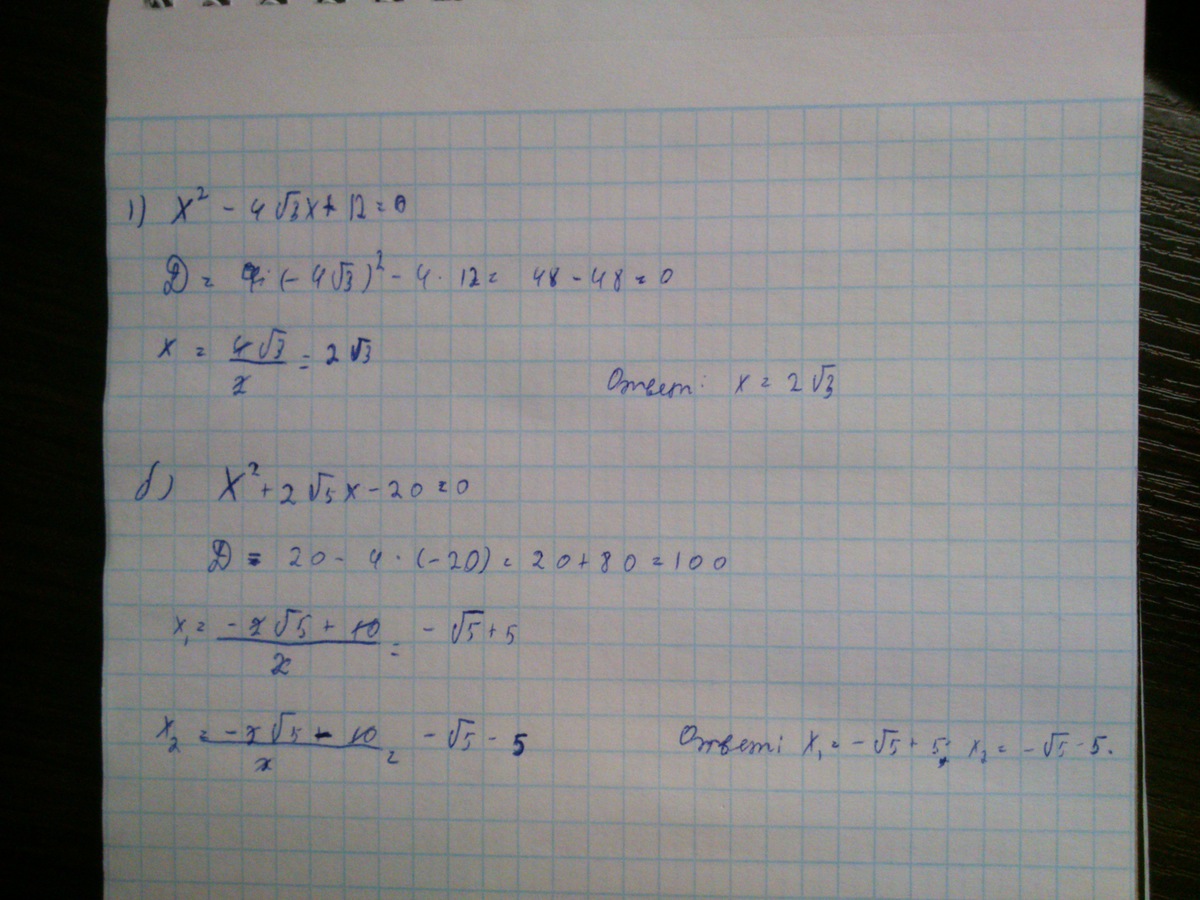 1) x² - 4√3x + 12 = 0
D = (-4√3)² - 4 · 12 = 48 - 48 = 0
x = 4√3/2 = 2√3
Ответ: x = 2√3
б) x² + 2√5x - 20 = 0
D = 20 - 4 · (-20) = 20 + 80 = 100
x₁ = -2√5 + 10/2 = -√5 + 5
x₂ = -2√5 - 10/2 = -√5 - 5
Ответ: x₁ = -√5 + 5; x₂ = -√5 - 5.